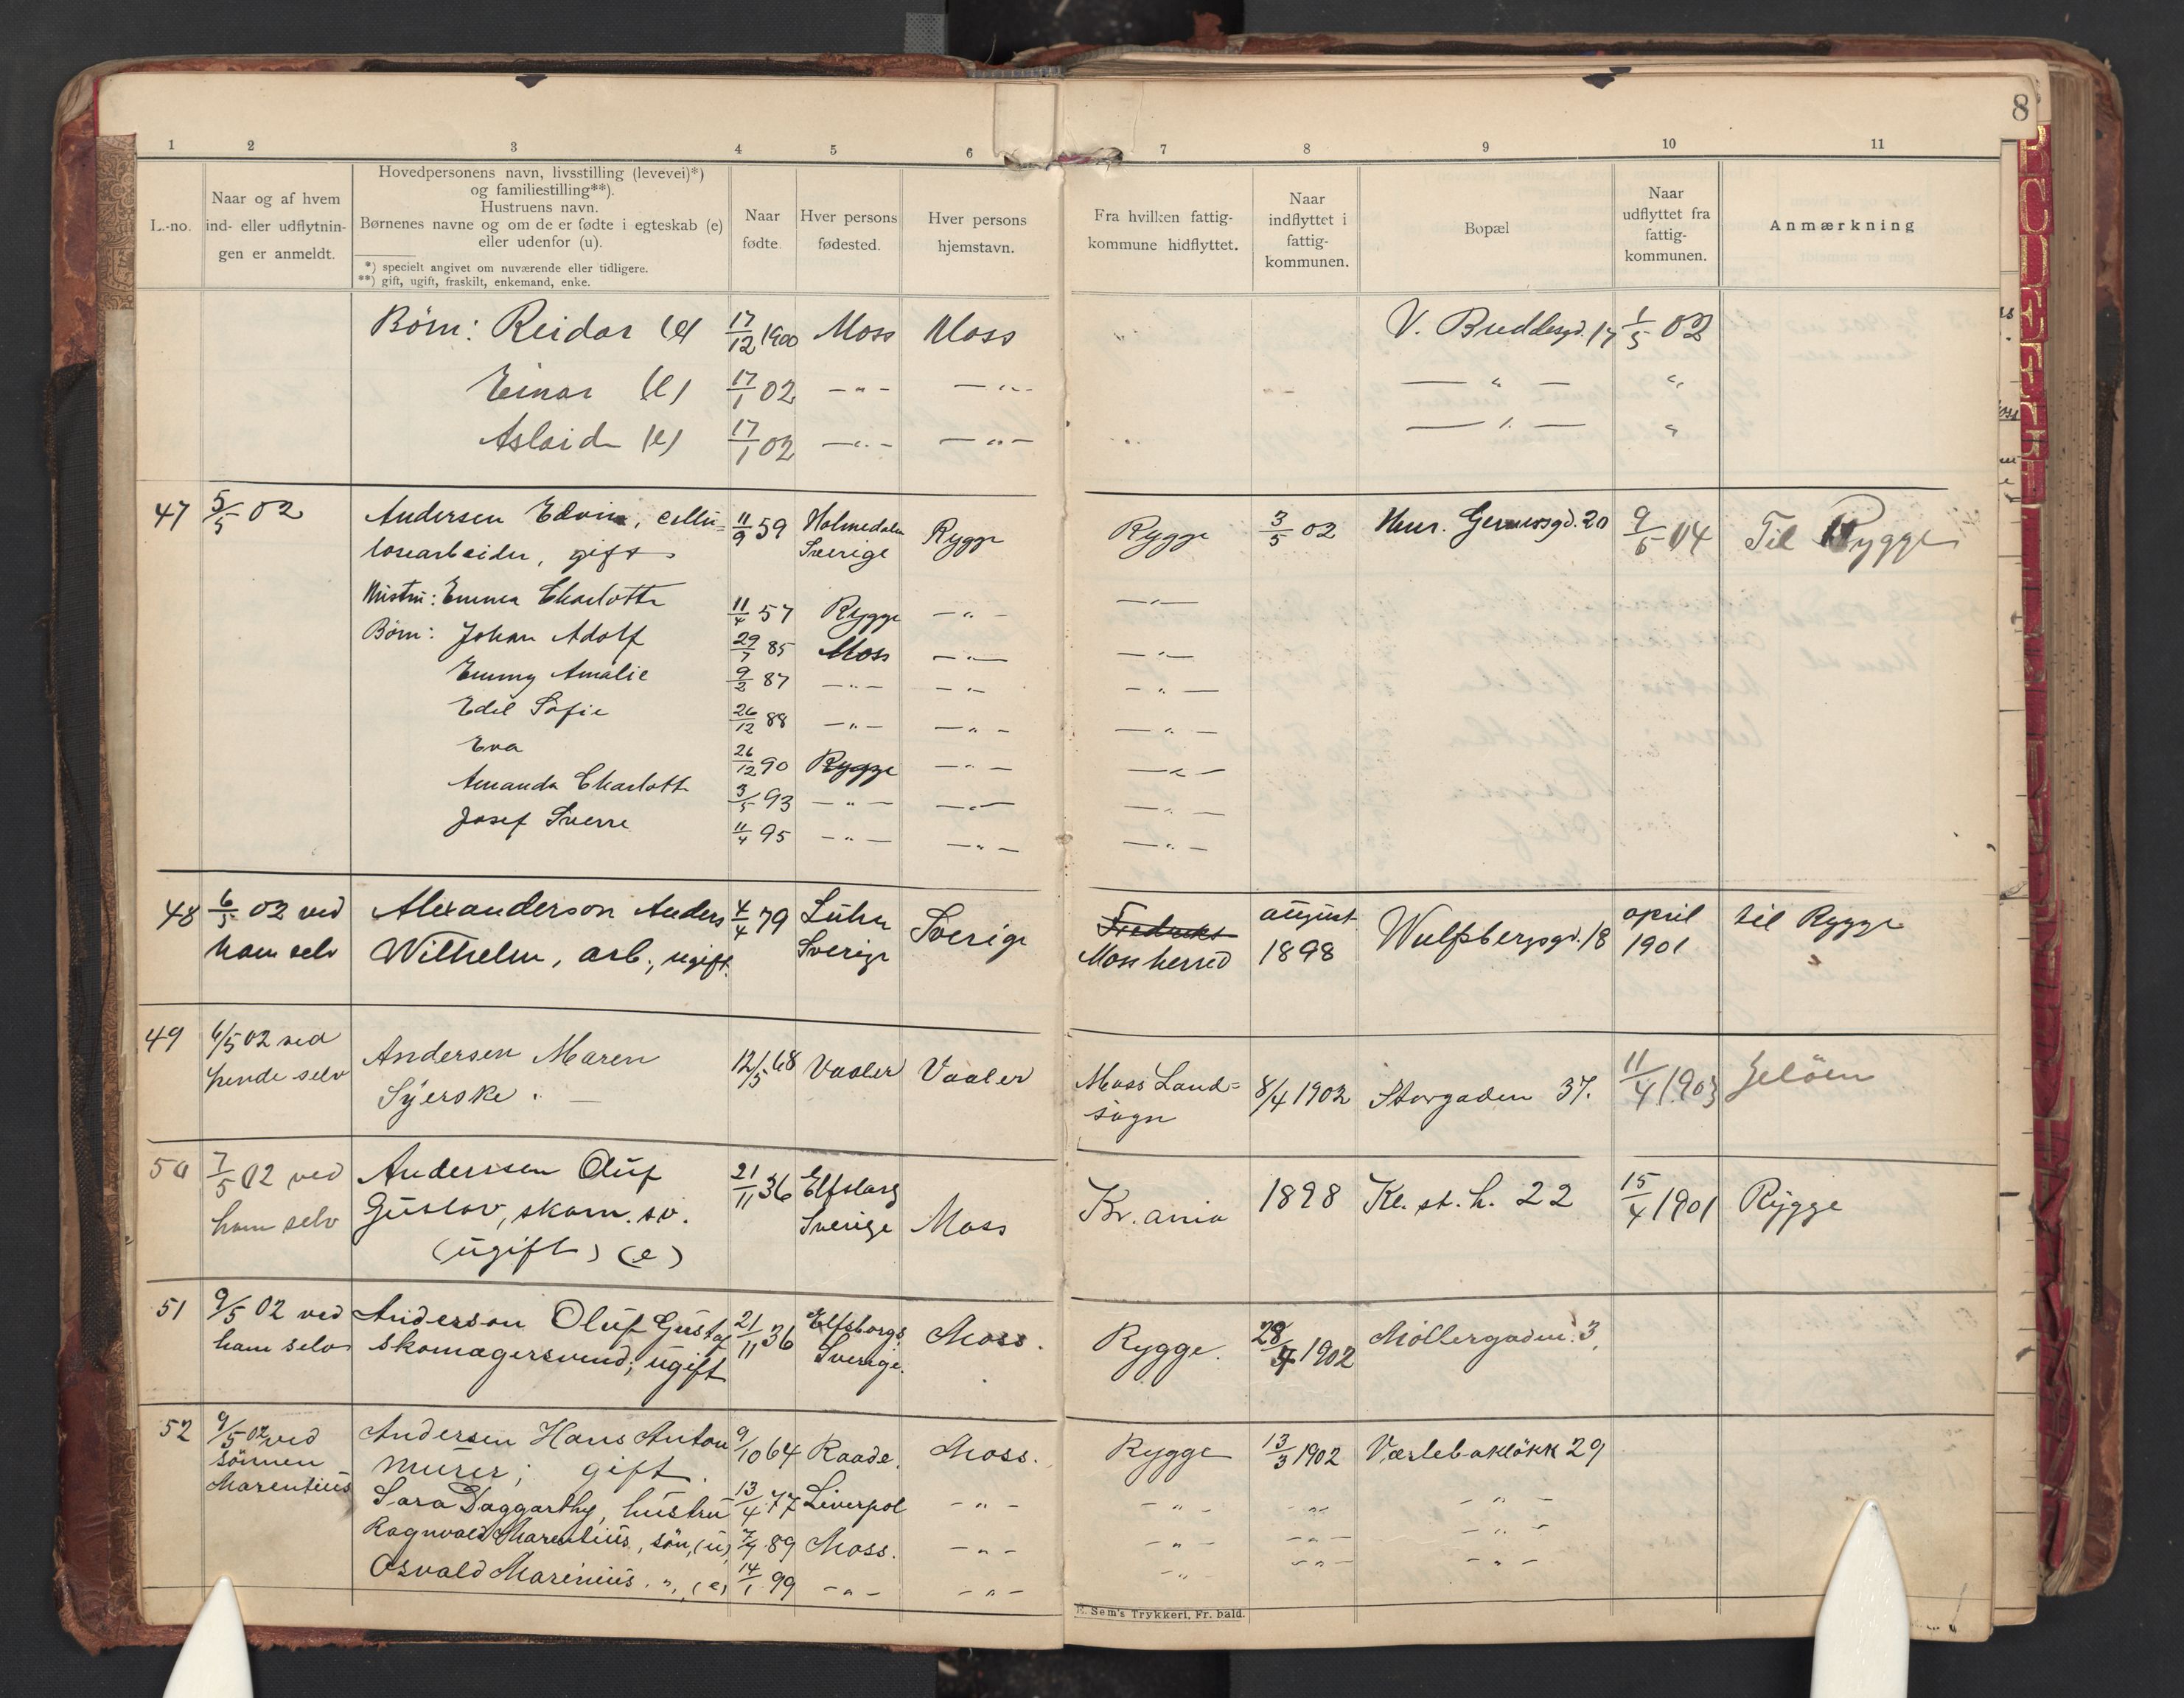 8
1 2 3 4 5 6 7 8 9 10 11
L.-no.
Naar og af hvem
ind- eller udflytnin-
gen er anmeldt.
Hovedpersonens navn, livsstilling (levevei)*)
og familiestilling**).
Hustruens navn.
Børnenes navne og om de er fødte i egteskab (e)
eller udenfor (u).
*) specielt angivet om nuværende eller tidligere.
**) gift, ugift, fraskilt, enkemand, enke.
Naar
fødte.
Hver persons
fødested.
Hver persons
hjemstavn.
Fra hvilken fattig-
kommune hidflyttet.
Naar
indflyttet i
fattig-
kommunen.
Bopæl
Naar
udflyttet fra
fattig-
kommunen.
Anmærkning
Børn: Reidar (e) 17/12 1900 Moss Moss V. Buddesgd. 17 1/5 02
Einar (e) 17/1 02 — " — — " — — " — "
Aslaid (e) 17/1 02 — " — — " — — " — "
47 5/5 02 Andersen Edvin, cellu= 11/9 59 Holmedalen Rygge Rygge 3/5 02 20 9/5 04 Til Rygge
losearbeider, gift Sverige
Hustru: Emma Charlotte 11/4 57 Rygge — " — — " —
Børn: Johan Adolf 29/7 85 Moss — " — — " —
Emmy Amalie 9/2 87 — " — — " — — " —
Edel Sofie 26/12 88 — " — — " — — " —
Eva 26/12 90 Rygge — " — — " —
Amanda Charlotte 3/5 93 — " — — " — — " —
Josef Sverre 11/4 95 — " — — " — — " —
48 6/5 02 ved Alexanderson Anders 4/4 79 Sverige Fredrikst august Wulfsbergsgd. 18 april til Rygge
ham selv Wilhelm, arb., ugift. Sverige Moss herred 1898 1901
49 6/5 02 ved Andersen Maren 12/5 68 Vaaler Vaaler Moss Land= 8/4 1902 Storgaden 37. 11/4 1903 Jelöen
hende selv Syerske. — sogn
50 7/5 02 ved Anderssen Oluf 21/11 36 Elfsborg Moss Kr.ania 1898 Kl. st. h. 22 15/4 1901 Rygge
ham selv Gustav, skom. sv. Sverige
(ugift) (e)
51 9/5 02 ved Anderson Oluf Gustaf 21/11 36 Elfsborgs Moss. Rygge. 28/4 1902 Möllergaden 3,
ham selv skomagersvend; ugift Sverige.
52 9/5 02 ved Andersen Hans Anton 9/10 64 Raade. Moss. Rygge 13/3 1902 Værlebakløkk 29
sönnen murer; gift.
Marentius Sara Daggarthy, hustru 13/4 77 Liverpol — " — — " — — " — — " —
Ragnvald Marentius, sön, (u) 7/7 89 Moss. — " — — " — — " — — " —
Osvald Marinius. ", (e) 14/1 99 — " — — " — — " — — " — — " —
E. Sem's Trykkeri, Fr. hald.